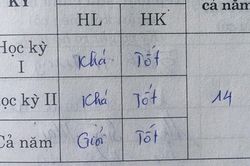 KỲ HL HK cả năm
Học kỳ I Khá Tốt
Học kỳ II Khá Tốt 14
Cả năm Giỏi Tốt